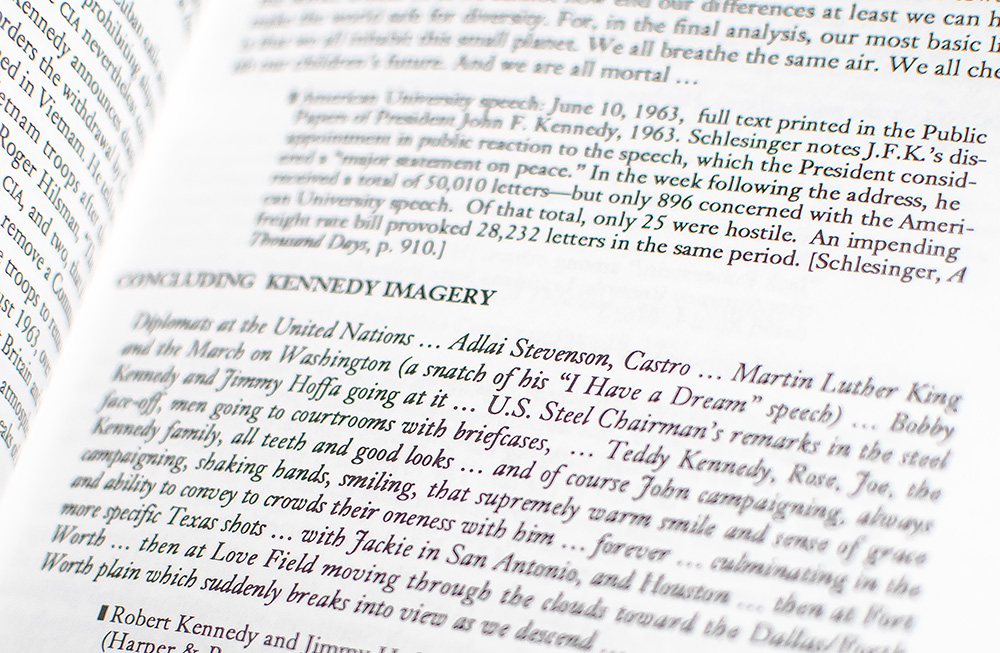 Cuban
prohibiting
CIA nevertheless
Kennedy announces
orders the withdrawal
ed in Vietnam. He
etnam troops after
Roger Hilsman,
CIA, and two
remove a
troops to
ust 1963,
Britain
atmosp
our differences at least we can h
safe for diversity. For, in the final analysis, our most basic li
inhabit this small planet. We all breathe the same air. We all che
children's future. And we are all mortal ...
American University speech: June 10, 1963, full text printed in the Public
Papers of President John F. Kennedy, 1963. Schlesinger notes J.F.K.'s dis-
appointment in public reaction to the speech, which the President consid-
ered a "major statement on peace." In the week following the address, he
received a total of 50,010 letters—but only 896 concerned with the Ameri-
can University speech. Of that total, only 25 were hostile. An impending
freight rate bill provoked 28,232 letters in the same period. [Schlesinger, A
Thousand Days, p. 910.]
CONCLUDING KENNEDY IMAGERY
Diplomats at the United Nations ... Adlai Stevenson, Castro ... Martin Luther King
and the March on Washington (a snatch of his "I Have a Dream" speech) ... Bobby
Kennedy and Jimmy Hoffa going at it ... U.S. Steel Chairman's remarks in the steel
face-off, men going to courtrooms with briefcases, ... Teddy Kennedy, Rose, Joe, the
Kennedy family, all teeth and good looks ... and of course John campaigning, always
campaigning, shaking hands, smiling, that supremely warm smile and sense of grace
and ability to convey to crowds their oneness with him ... forever ... culminating in the
more specific Texas shots ... with Jackie in San Antonio, and Houston ... then at Fort
Worth ... then at Love Field moving through the clouds toward the Dallas/Forth
Worth plain which suddenly breaks into view as we descend ...
Robert Kennedy and Jimmy
(Harper &